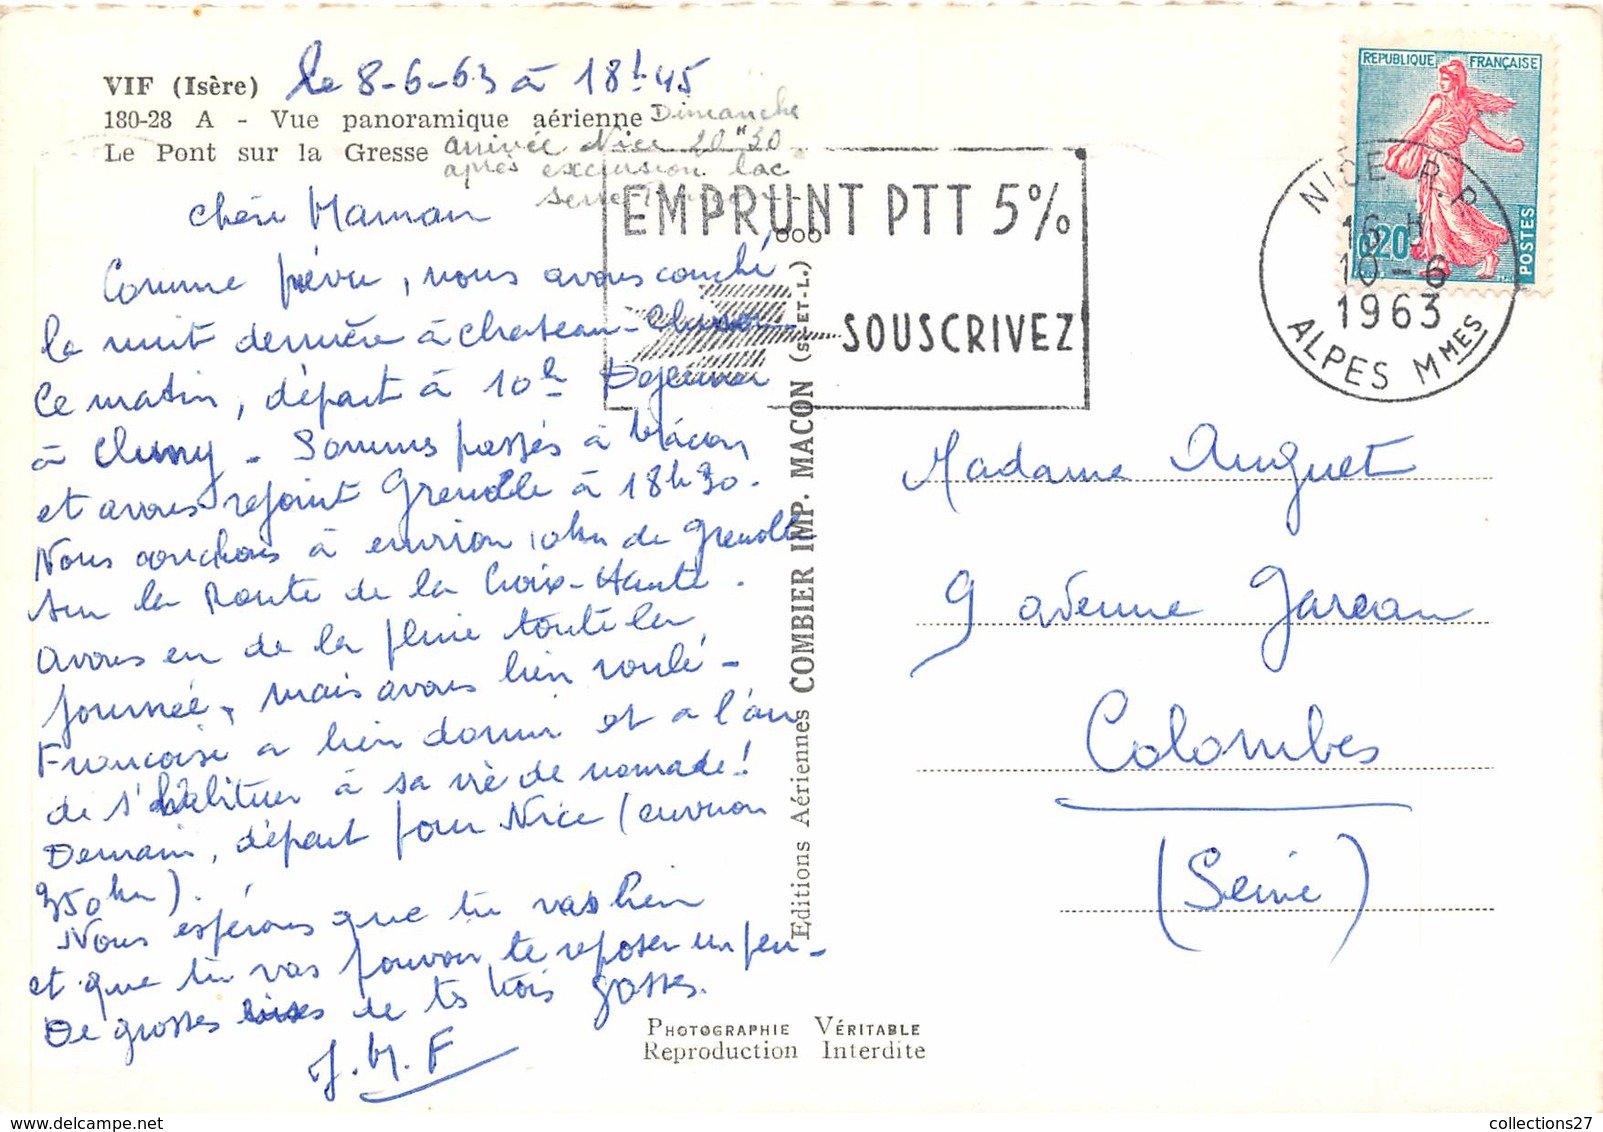 VIF (Isère) le 8-6-63 à 18h45
180-28 A - Vue panoramique aérienne Dimanche
Le Pont sur la Gresse arrivée Nice 20H30
après excursion lac
Serre
Chère Maman
Comme prévu, nous avons couché
la nuit dernière à Chateau-Chinon
Ce matin, départ à 10h Dejeuner
à Cluny - Sommes passés à Mâcon
et avons rejoint Grenoble à 18h30.
Nous couchons à environ 10km de Grenoble
sur la Route de la Croix-Haute.
Avons eu de la pluie toute la
journée, mais avons bien roulé -
Françoise a bien dormi et a l'air
de s'habituer à sa vie de nomade!
Demain, départ pour Nice (environ
350km).
Nous espérons que tu vas bien
et que tu vas pouvoir te reposer un peu -
De grosses bises de tes trois gosses.
J.M.F
EMPRUNT PTT 5%
SOUSCRIVEZ
Editions Aériennes COMBIER IMP. MACON (S.-ET-L.)
PHOTOGRAPHIE VÉRITABLE
Reproduction Interdite
REPUBLIQUE FRANÇAISE
0,20
POSTES
NICE R.P.
16 H
10-6
1963
ALPES MMES
Madame Auguet
9 avenue Jarcau
Colombes
(Seine)
collections27